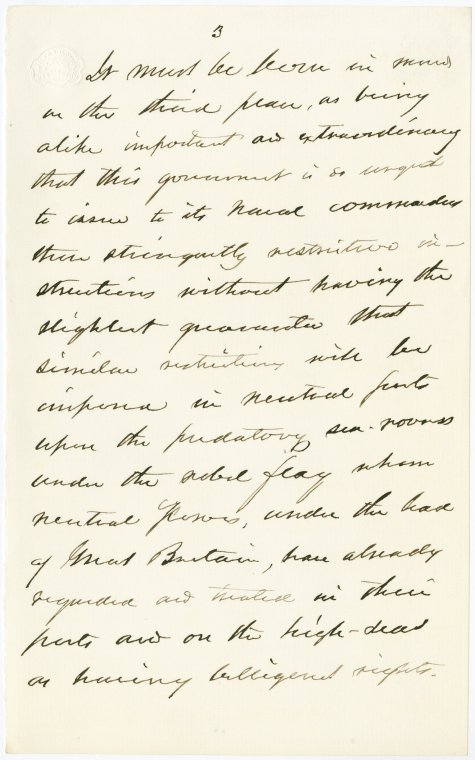 3
It must be born in mind
in the third place, as being
alike important and extraordinary
that this government is so urged
to issue to its Naval commanders
these stringently restrictive in-
structions without having the
slightest guarantee that
similar restrictions will be
imposed in neutral ports
upon the predatory sea-rovers
under the rebel flag whom
neutral Powers, under the lead
of Great Britain, have already
regarded and treated in their
ports and on the high-seas
as having belligerent rights.